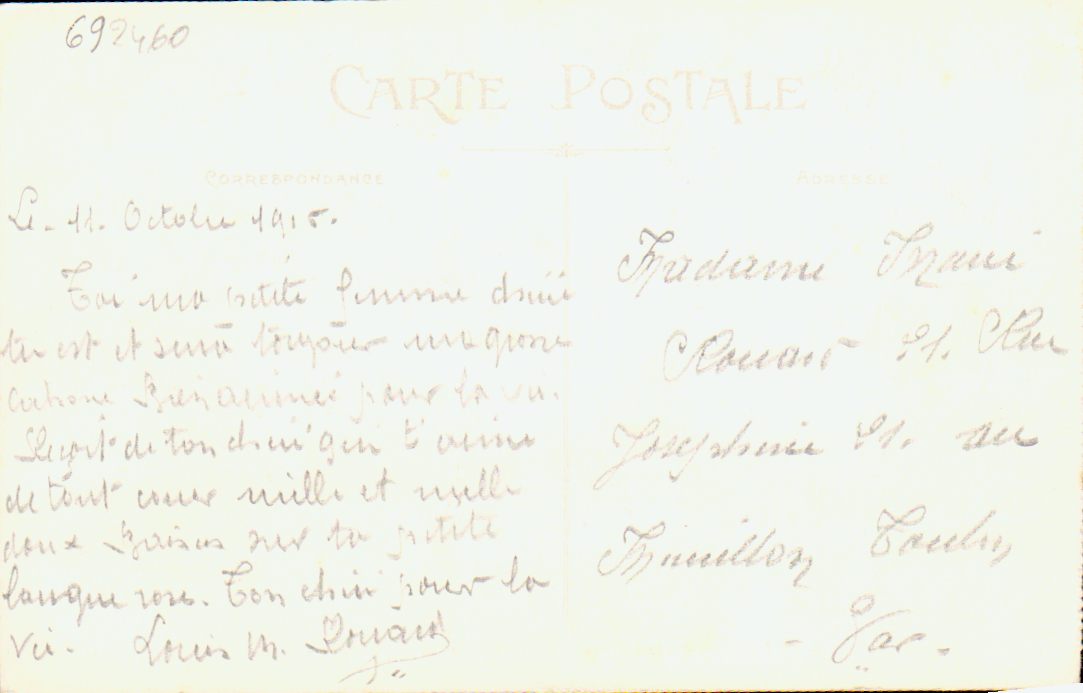 692460
CARTE POSTALE
CORRESPONDANCE
ADRESSE
Le - 11. Octobre 1915.
Toi ma petite femme chérie
tu est et sera toujour ma grosse
cochone Bien aimée pour la vie.
Reçoit de ton chéri qui t'aime
de tout coeur mille et mille
doux Baisers sur ta petite
langue rose. Ton chéri pour la
vie. Louis M. Rouard
Madame Marie
Rouard 21. Rue
Joséphine 21. au
Mourillon Toulon
- Var -